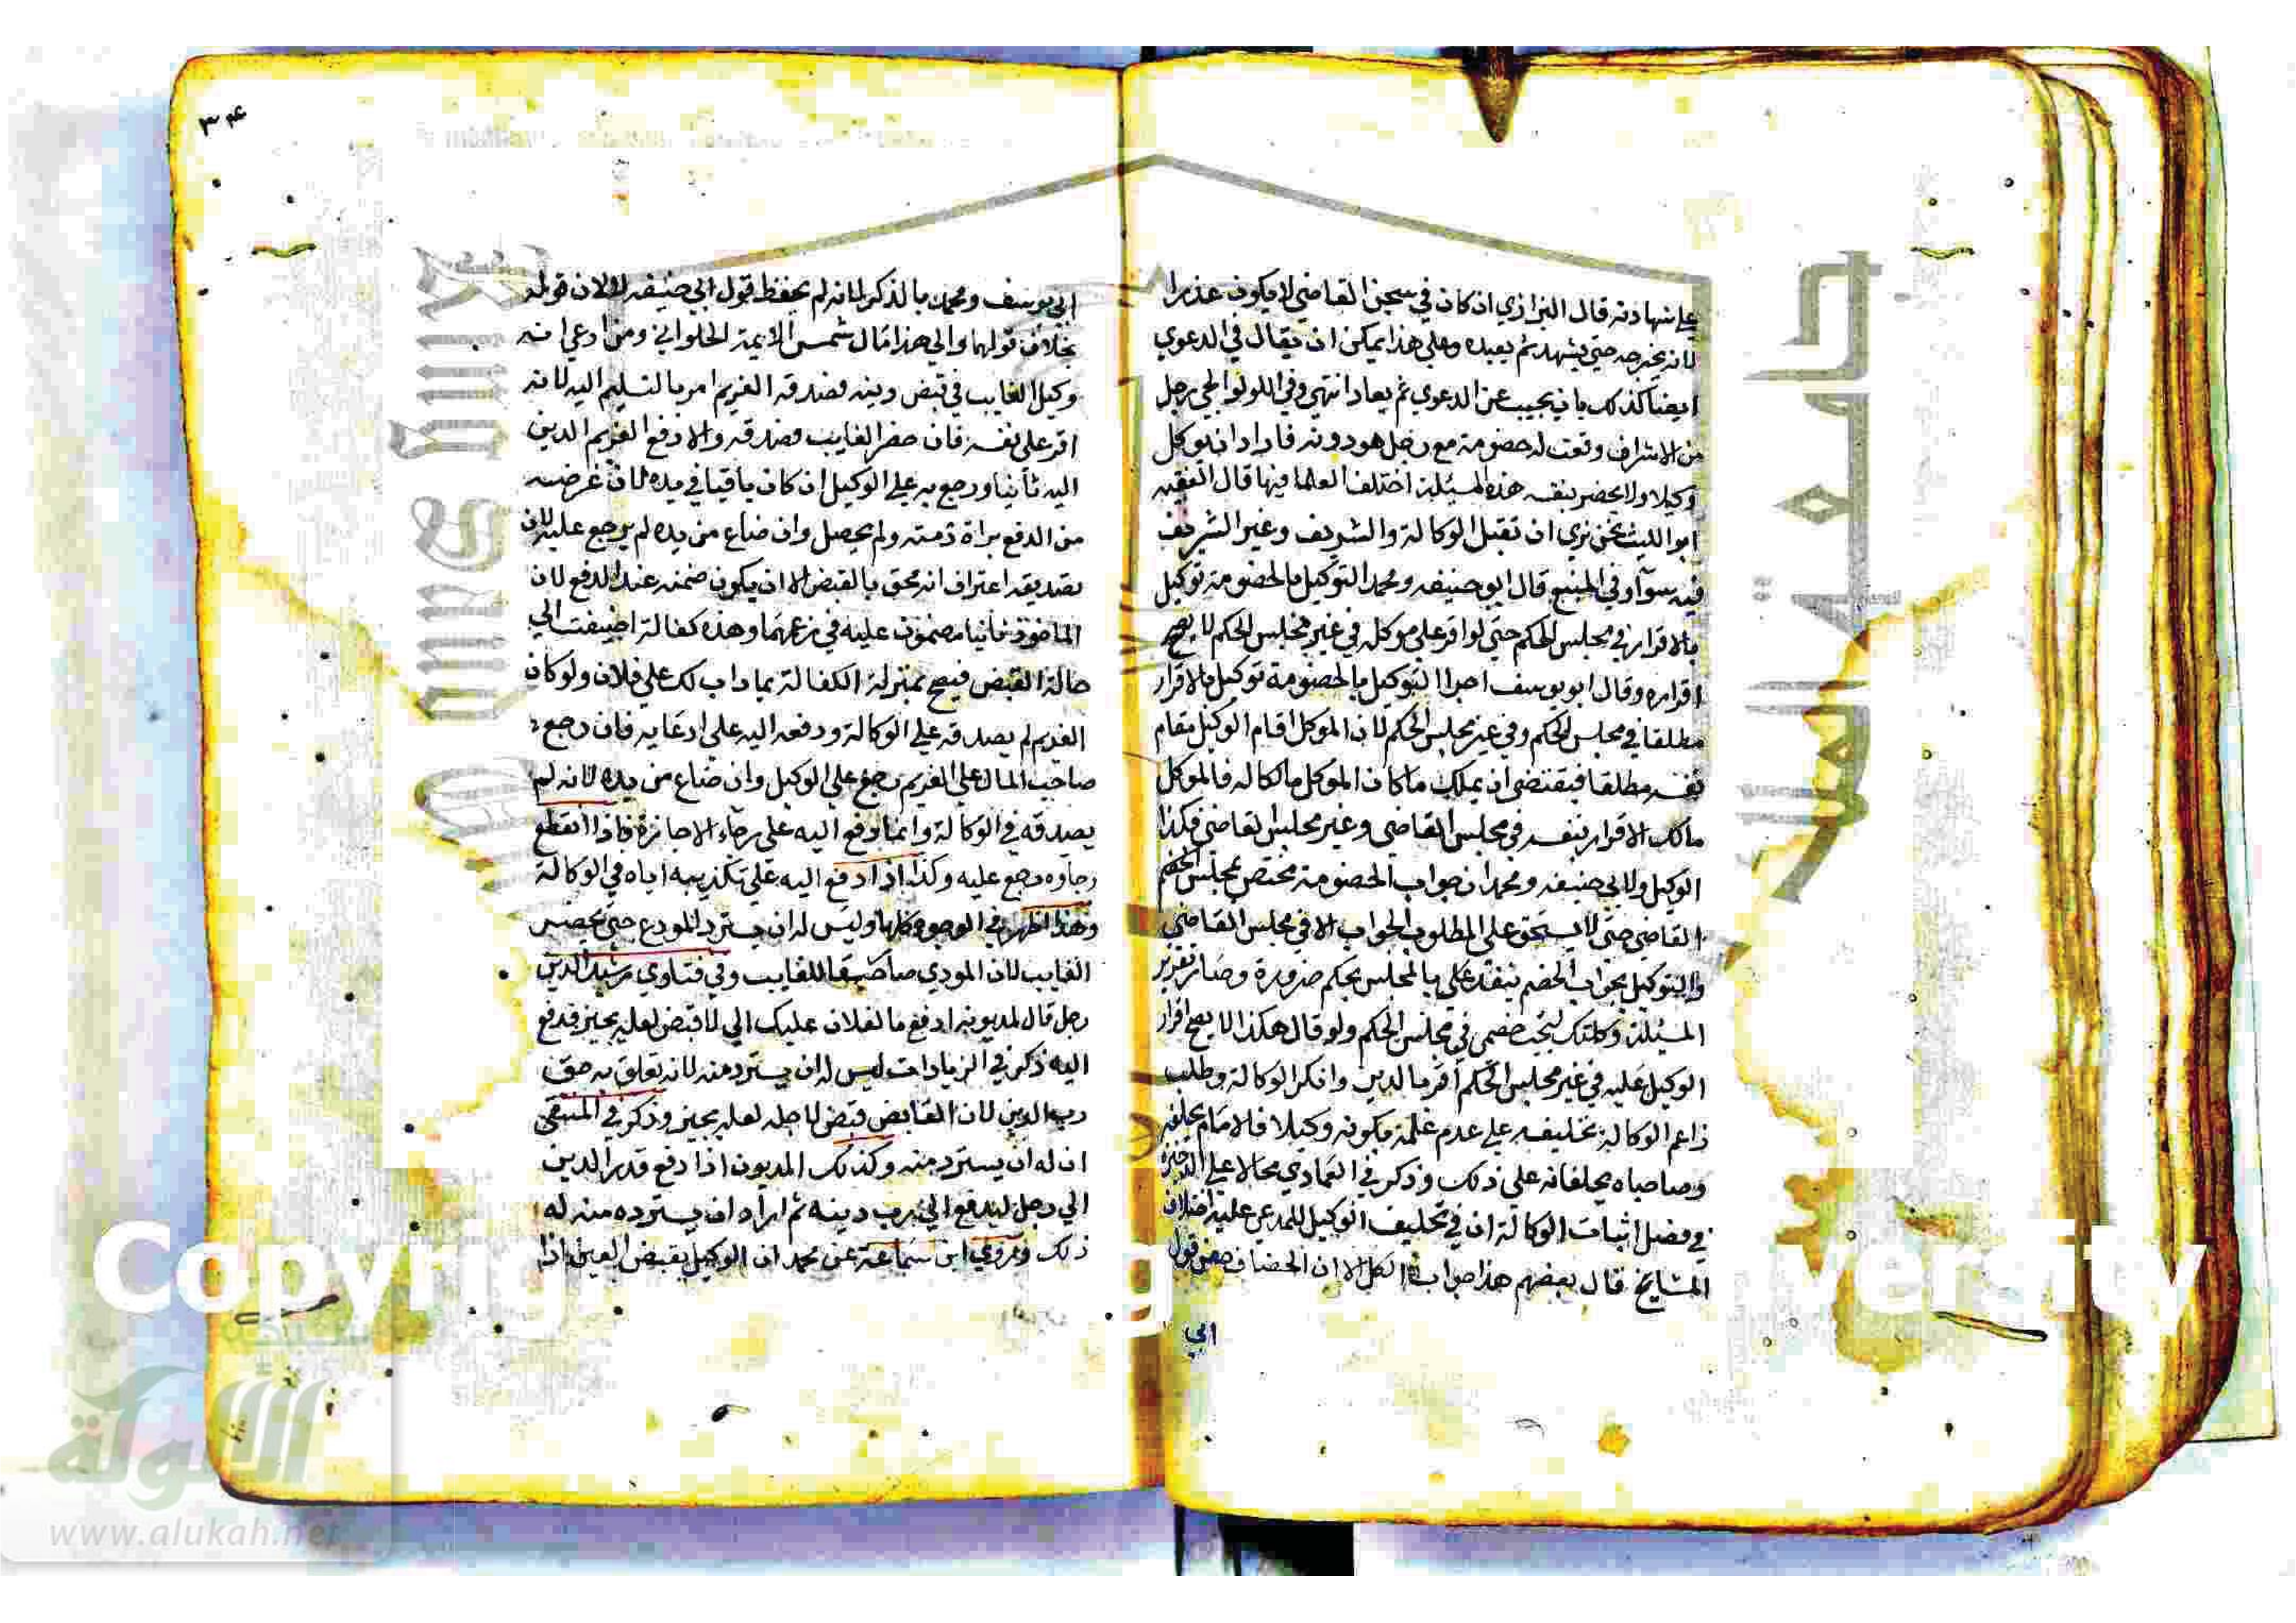 على شهادته قال البزازي ان كان في سجن القاضي لا يكون عذرا
لانه يخرجه حتى يشهد ثم يعيده وعلى هذا يمكن ان يقال في الدعوي
ايضا كذلك بان يجيب عن الدعوي ثم يعاد انتهي وفي اللولوالجي رجل
من الاشراف وقعت له خصومة مع رجل هو دونه فاراد ان يوكل
وكيلا ولا يحضر بنفسه هذه المسئلة اختلف العلما فيها قال الفقيه
ابو الليث نحن نري ان تقبل الوكالة والشريف وغير الشريف
فيه سوآ وفي المنبع قال ابو حنيفه ومحمد التوكيل بالخصومة توكيل
بالاقرار في مجلس الحكم حتي لو اقر على موكله في غير مجلس الحكم لا يصح
اقراره وقال ابو يوسف اخرا التوكيل بالخصومة توكيل بالاقرار
مطلقا في مجلس الحكم وفي غير مجلس الحكم لان الموكل اقام الوكيل مقام
نفسه مطلقا فيقتضي ان يملك ما كان الموكل مالكا له فالموكل
مالك الاقرار بنفسه في مجلس القاضي وغير مجلس القاضي فكذا
الوكيل ولابي حنيفه ومحمد ان جواب الخصومة مختص بمجلس الحكم
القاضي حتى لا يستحق على المطلوب الجواب الا في مجلس القاضي
والتوكيل بجواب الخصم بالمجلس بحكم ضرورة وصار تقرير
المسئلة وكلتك لتجيب خصمي في مجلس الحكم ولو قال هكذا لا يصح اقرار
الوكيل عليه في غير مجلس الحكم اقر بالدين وانكر الوكالة وطلب
زاعم الوكالة تحليفه علي عدم علمه بكونه وكيلا فالامام يحلفه
وصاحباه يحلفانه على ذلك وذكر في العمادي محالا علي الذخيرة
في فصل اثبات الوكالة ان في تحليف الوكيل للمدعي عليه اختلاف
المشايخ قال بعضهم هذا جواب الكل الا ان الخصاف خص قول
ابي
٣٤
ابي يوسف ومحمد بالذكر لانه لم يحفظ قول ابي حنيفه لا لان قوله
بخلاف قولهما والي هذا مال شمس الايمة الحلواني ومن ادعي انه
وكيل الغايب في قبض دينه فصدقه الغريم امر بالتسليم اليه لانه
اقر على نفسه فان حضر الغايب فصدقه والا دفع الغريم الدين
اليه ثانيا ورجع به علي الوكيل ان كان باقيا في يده لان غرضه
من الدفع براة ذمته ولم يحصل وان ضاع من يده لم يرجع عليه لان
بتصديقه اعترف انه محق بالقبض الا ان يكون ضمنه عند الدفع لان
الماخوذ ثانيا مضمون عليه في زعمهما وهذه كفالة اضيفت الي
حالة القبض فيصح بمنزلة الكفالة بما داب لك علي فلان ولو كان
الغريم لم يصدقه علي الوكالة ودفعه اليه على ادعايه فان رجع
صاحب المال علي الغريم رجع علي الوكيل وان ضاع من يده لانه لم
يصدقه في الوكالة وانما دفع اليه على رجاء الاجازة فاذا انقطع
رجاوه رجع عليه وكذا اذا دفع اليه على تكذيبه اياه في الوكالة
وهذا اظهر في الوجوه كلها وليس له ان يسترد المودع حتي يحضر
الغايب لان المودي صار حقا للغايب وفي فتاوي رشيد الدين
رجل قال لمديونه ادفع ما لفلان عليك الي لاقبض لعله يجيز فدفع
اليه ذكر في الزيادات ليس له ان يسترد منه لانه تعلق به حق
رب الدين لان القابض قبض لاجله لعله يجيز وذكر في المنتقى
ان له ان يسترد منه وكذلك المديون اذا دفع قدر الدين
الي رجل ليدفع الي رب دينه ثم اراد ان يسترده منه له
ذلك وروي ابن سماعة عن محمد ان الوكيل بقبض العين اذا
Copyrig
versity
الألوكة
www.alukah.net